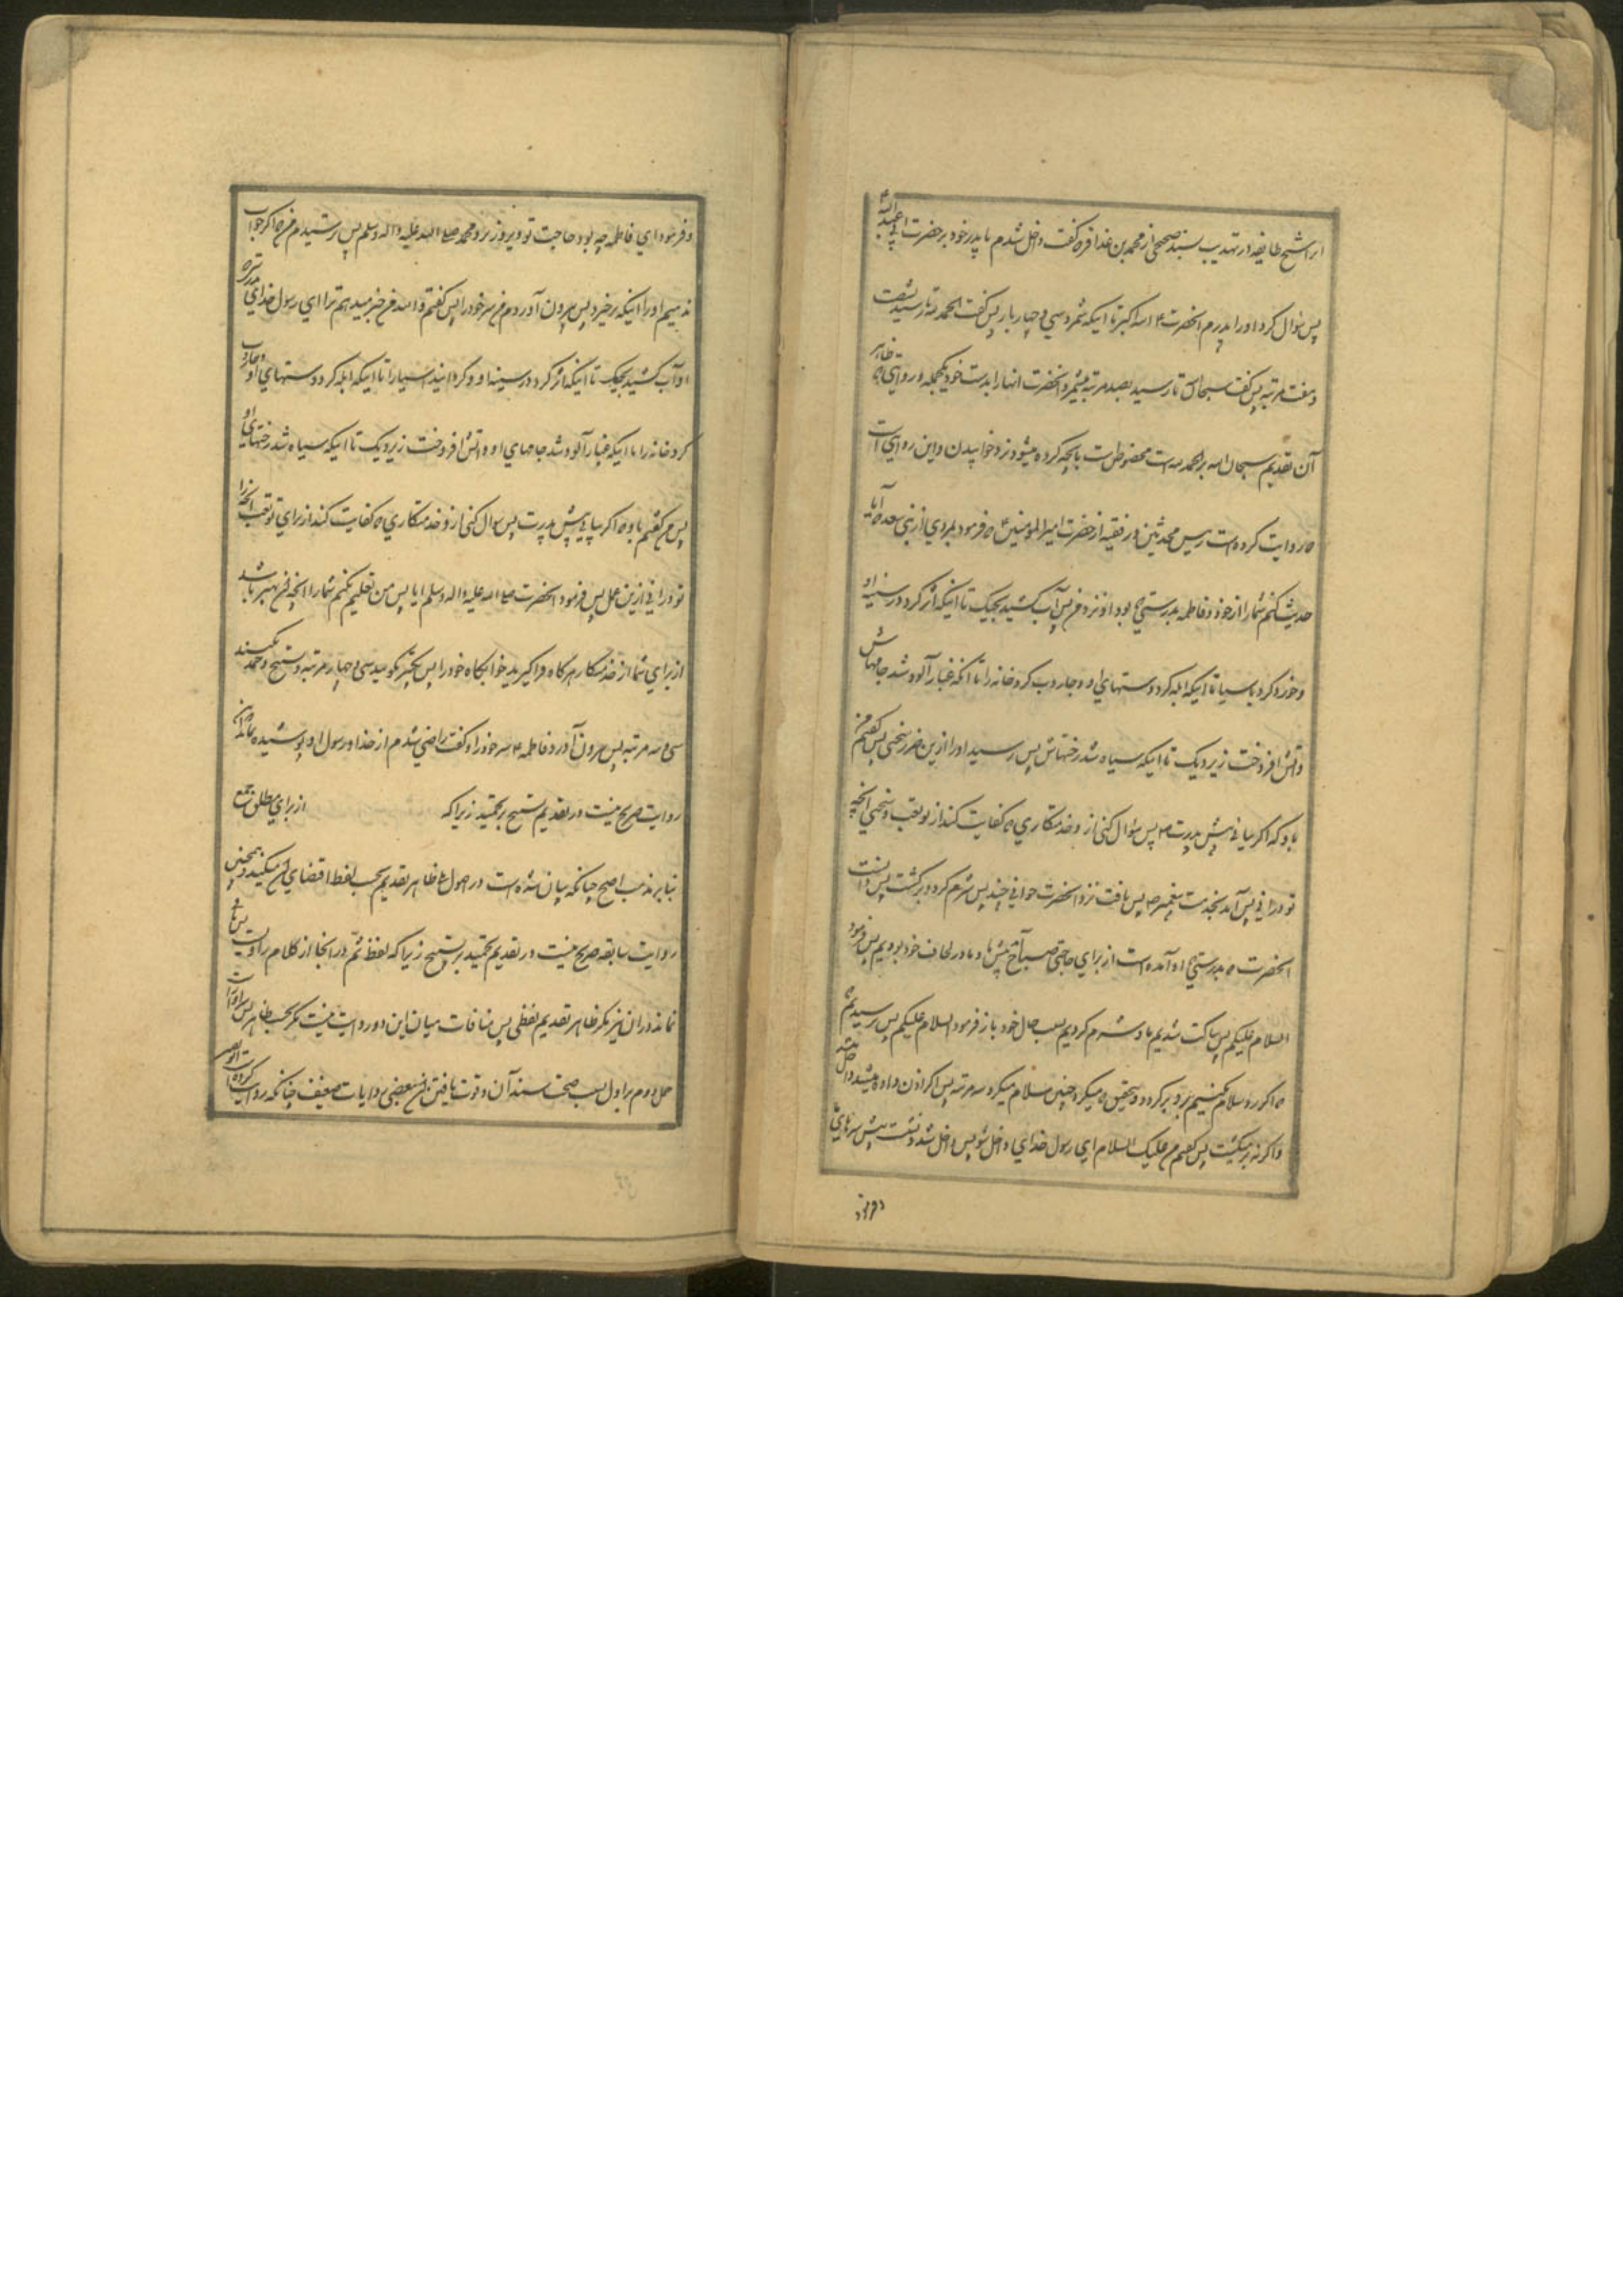 شیخ طایفه در تهذیب بسند صحیح از محمد بن عذافر که گفت داخل شدم با پدر خود بر حضرت ابی عبدالله ع
پس سؤال کرد او را پدرم آنحضرت ع الله اکبر تا اینکه شمرد سی و چهار بار پس گفت الحمد لله تا رسید بشصت
و هفت مرتبه پس گفت سبحان الله تا رسید بصد مرتبه میشمرد آنحضرت آنها را بدست خود یکجمله و روایتی که ظاهر
آن تقدیم سبحان الله بر الحمد لله است مخصوص است بآنچه کرده میشود نزد خوابیدن و این روایتی است
که روایت کرده است رییس محدثین در فقیه از حضرت امیر المومنین ع که فرمود بمردی از بنی سعد که آیا
حدیث کنم شما را از خود و فاطمه بدرستیکه بود او نزد من پس آب کشید بخیک تا اینکه اثر کرد در سینه او
و خورد کرد باسیا تا اینکه ابله کرد دستهای او و جاروب کرد خانه را تا آنکه غبار آلود شد جامهاش
و آتش افروخت زیر دیک تا اینکه سیاه شد رختهاش پس رسید او را ازین ضرر سختی پس گفتم من
باو که اگر بیائی پیش پدرت ص پس سؤال کنی از و خدمتکاری که کفایت کند از تو تعب و سختی آنچه
تو درانی پس آمد بخدمت پیغمبر ص پس یافت نزد آنحضرت جوانی چند پس شرم کرد و برگشت پس دانست
آنحضرت که بدرستیکه او آمده است از برای حاجتی صباح پیش ما و ما در لحاف خود بودیم پس فرمود
السلام علیکم پس ساکت شدیم ما و شرم کردیم بسبب حال خود باز فرمود السلام علیکم پس ترسیدیم که
که اگر رد سلام نکنیم برود برگردد و بتحقیق که میکرد چنین سلام میکرد سه مرتبه پس اگر اذن داده میشد داخل میشد
و اگر نه برمیگشت پس گفتم من علیک السلام ای رسول خدای داخل شو پس داخل شد و نشست پیش سرهای ما
و فرمود
و فرمود ای فاطمه چه بود حاجت تو دیروز نزد محمد صلی الله علیه و اله و سلم پس ترسیدم من که اگر جواب
ندهیم او را اینکه برخیزد پس بیرون آوردم من سر خود را پس گفتم والله من خبر میدهم ترا ای رسول خدای بدرستیکه
او آب کشید بخیک تا اینکه اثر کرد در سینه او و گردانید آسیا را تا اینکه ابله کرد دستهای او و جاروب
کرد خانه را تا اینکه غبار آلود شد جامهای او و آتش افروخت زیر دیک تا اینکه سیاه شد رختهای او
پس من گفتم باو که اگر بیائی پیش پدرت پس سوال کنی از و خدمتکاری که کفایت کند از برای تو تعب آنچه را
تو درانی ازین عمل پس فرمود آنحضرت صلی الله علیه و اله و سلم ایا پس من تعلیم نکنم شما را آنچه آن بهتر باشد
از برای شما از خدمتکار هر گاه فراگیرید خوابگاه خود را پس تکبیر بگویید سی و چهار مرتبه و تسبیح و حمد بکنید
سی و سه مرتبه پس بیرون آورد فاطمه ع سر خود را و گفت راضی شدم از خدا و رسول او و پوشیده نماند که این
روایت صریح نیست در تقدیم تسبیح بر تحمید زیرا که از برای مطلق جمع
بنا بر مذهب اصح چنانکه بیان شده است در اصول ظاهر تقدیم بحسب لفظ اقتضای آن میکند و همچنین
روایت سابقه صریح نیست در تقدیم تحمید بر تسبیح زیرا که لفظ ثم در انجا از کلام راویست پس باقی
نماند در ان نیز مگر ظاهر تقدیم لفظی پس منافات میان این دو روایت نیست مگر بحسب ظاهر پس
حمل دوم بر اول بسبب صحت سند آن و قوت یافتن آن ببعضی روایات ضعیف چنانکه روایت کرده است